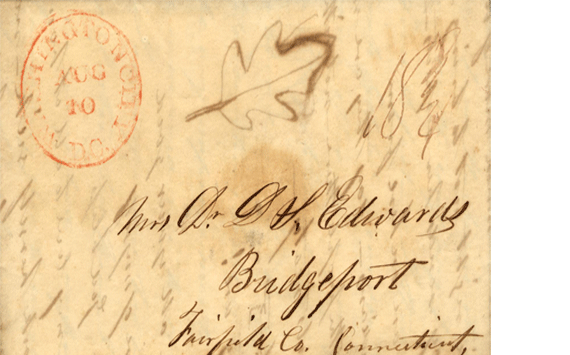 WASHINGTON CITY
AUG
10
D.C.
18¾
Mrs Dr. D S. Edwards
Bridgeport
Fairfield Co. Connecticut,